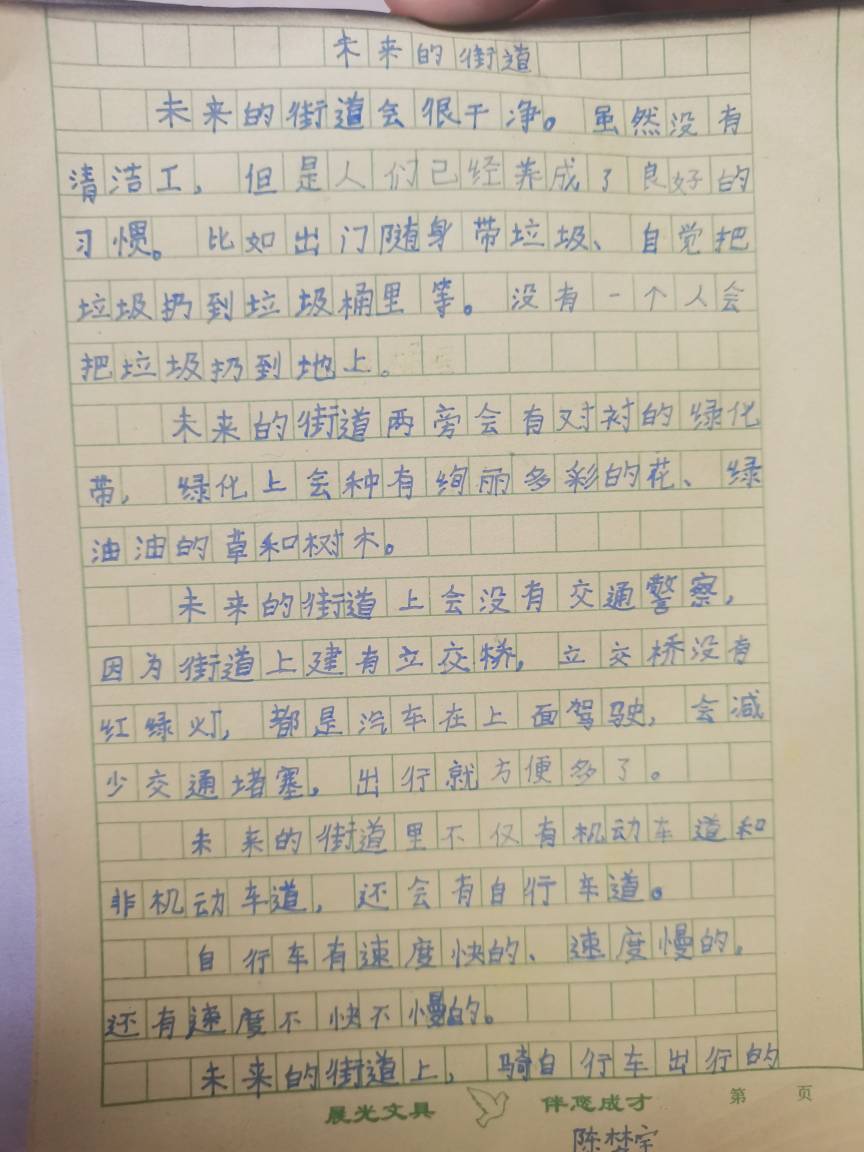 未来的街道
未来的街道会很干净。虽然没有
清洁工，但是人们已经养成了良好的
习惯。比如出门随身带垃圾、自觉把
垃圾扔到垃圾桶里等。没有一个人会
把垃圾扔到地上。
未来的街道两旁会有对衬的绿化
带，绿化上会种有绚丽多彩的花、绿
油油的草和树木。
未来的街道上会没有交通警察，
因为街道上建有立交桥，立交桥没有
红绿灯，都是汽车在上面驾驶，会减
少交通堵塞，出行就方便多了。
未来的街道里不仅有机动车道和
非机动车道，还会有自行车道。
自行车有速度快的、速度慢的，
还有速度不快不慢的。
未来的街道上，骑自行车出行的
晨光文具 伴您成才 第 页
陈梦宇